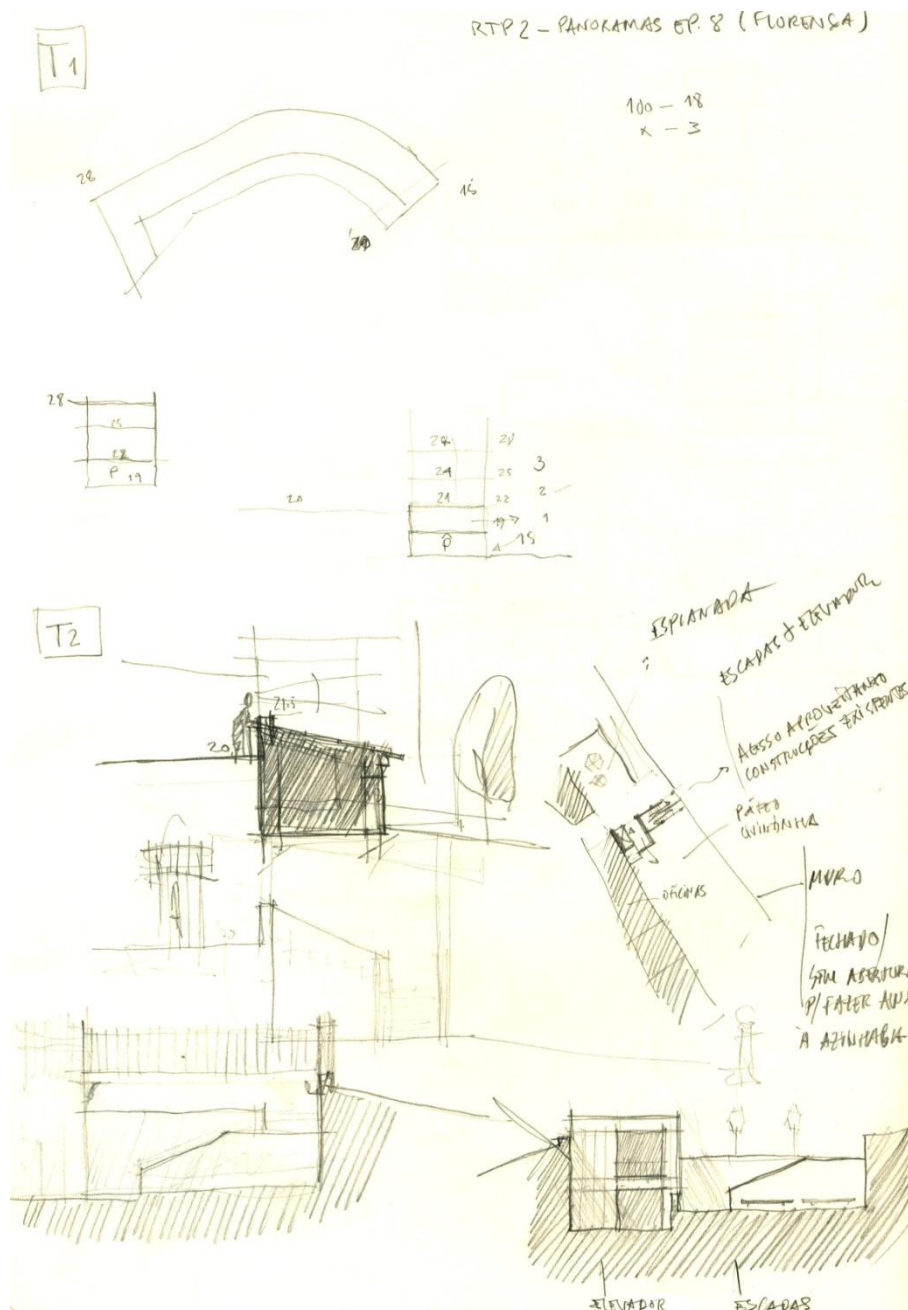 RTP2 – PANORAMAS EP. 8 (FLORENÇA)
T1
100 – 18
x – 3
28
15
28
25
22
P 19
20
24
21
28
25
22
3
2
1
P
15
T2
20
ESPLANADA
ESCADAS + ELEVADOR
ACESSO APROVEITANDO
CONSTRUÇÕES EXISTENTES
PÁTEO
OFICINAS
MURO
FECHADO/
SEM ABERTURA
P/ FAZER
À AZINHAGA
ELEVADOR
ESCADAS